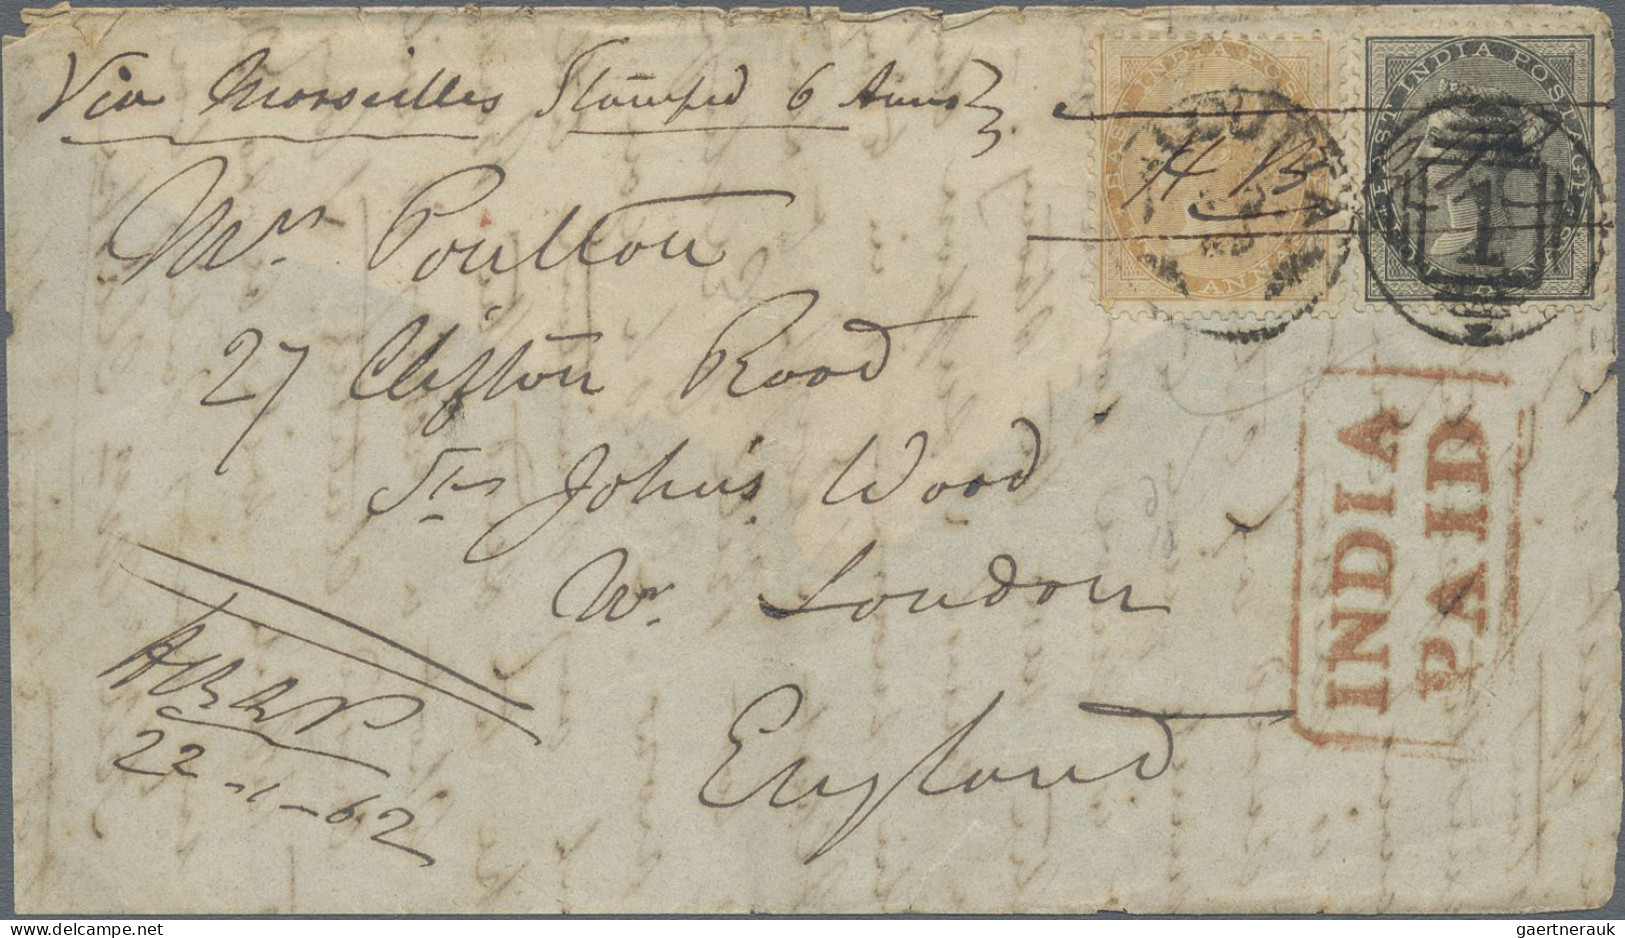 Via Marseilles Stamped 6 Annas
EAST INDIA POSTAGE
ANNAS
EAST INDIA POSTAGE
H B
1
Mrs. Poulton
27 Clifton Road
St. John's Wood
W. London
England
INDIA
PAID
22-1-62
delcampe.net
gaertnerauk